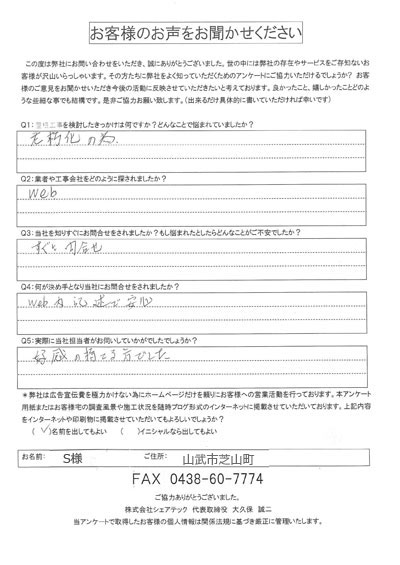 お客様のお声をお聞かせください
この度は弊社にお問い合わせをいただき、誠にありがとうございました。世の中には弊社の存在やサービスをご存知ないお
客様が沢山いらっしゃいます。その方たちに弊社をよく知っていただくためのアンケートにご協力いただけるでしょうか? お客
様のご意見をお聞かせいただき今後の活動に反映させていただきたいと考えております。良かったこと、嬉しかったことどのよ
うな些細な事でも結構です。是非ご協力お願い致します。(出来るだけ具体的に書いていただければ幸いです)
Q1:屋根工事を検討したきっかけは何ですか?どんなことで悩まれていましたか?
老朽化の為
Q2:業者や工事会社をどのように探されましたか?
web
Q3:当社を知りすぐにお問合せをされましたか?もし悩まれたとしたらどんなことがご不安でしたか?
すぐに問合せ
Q4:何が決め手となり当社にお問合せをされましたか?
web内記述で安心
Q5:実際に当社担当者がお伺いしていかがでしたでしょうか?
好感の持てる方でした
*弊社は広告宣伝費を極力かけない為にホームページだけを頼りにお客様への営業活動を行っております。本アンケート
用紙またはお客様宅の調査風景や施工状況を随時ブログ形式のインターネットに掲載させていただいております。上記内容
をインターネットや印刷物に掲載させていただいてもよろしいでしょうか?
(✓)名前を出してもよい ( )イニシャルなら出してもよい
お名前: S様 ご住所: 山武市芝山町
FAX 0438-60-7774
ご協力ありがとうございました。
株式会社シェアテック 代表取締役 大久保 誠二
当アンケートで取得したお客様の個人情報は関係法規に基づき厳正に管理いたします。